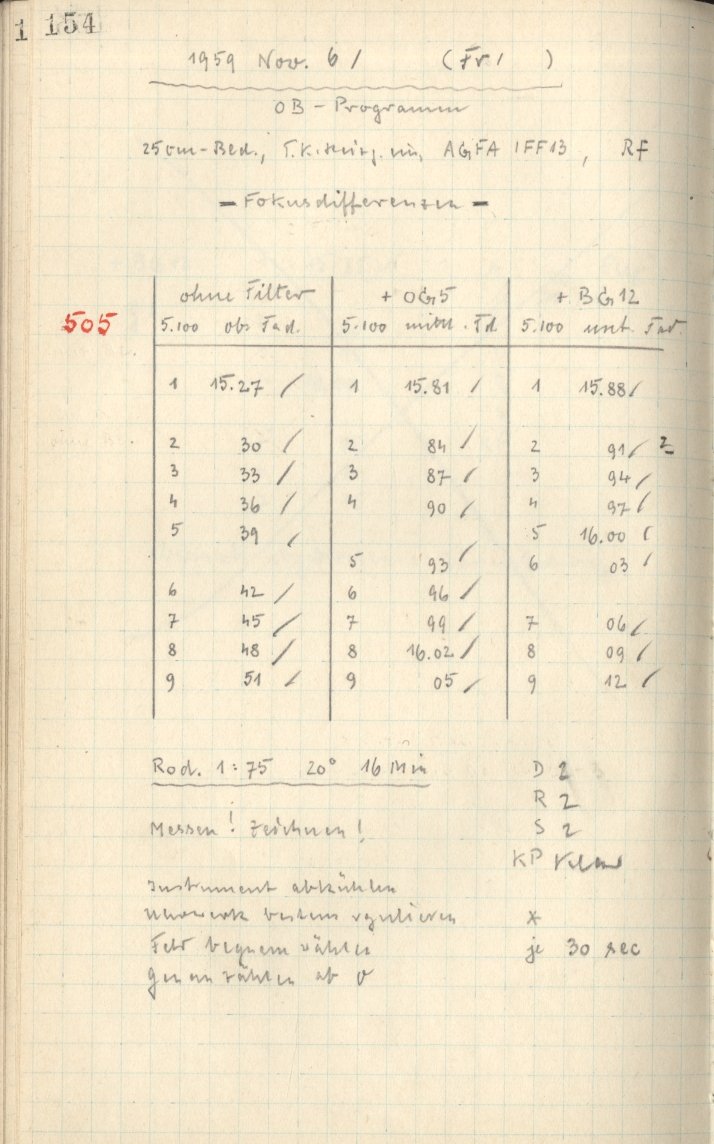 1 154
1959 Nov. 6/ (Fr/ )
OB - Programm
25cm-Bed., AGFA IFF13, Rf
- Fokusdifferenzen -
505
ohne Filter + OG5 + BG12
5.100 obs Fad. 5.100 mittl. Fd 5.100 unt. Fad
1 15.27 / 1 15.81 / 1 15.88 /
2 30 / 2 84 / 2 91 / 2
3 33 / 3 87 / 3 94 /
4 36 / 4 90 / 4 97 /
5 39 / 5 16.00 /
5 93 / 6 03 /
6 42 / 6 96 /
7 45 / 7 99 / 7 06 /
8 48 / 8 16.02 / 8 09 /
9 51 / 9 05 / 9 12 /
Rod. 1:75 20° 16 Min
D 2
R 2
Messen! Zeichnen!
S 2
KP
Instrument abkühlen
Uhrwerk bestens regulieren *
Feld bequem wählen je 30 sec
Genau zählen ab 0